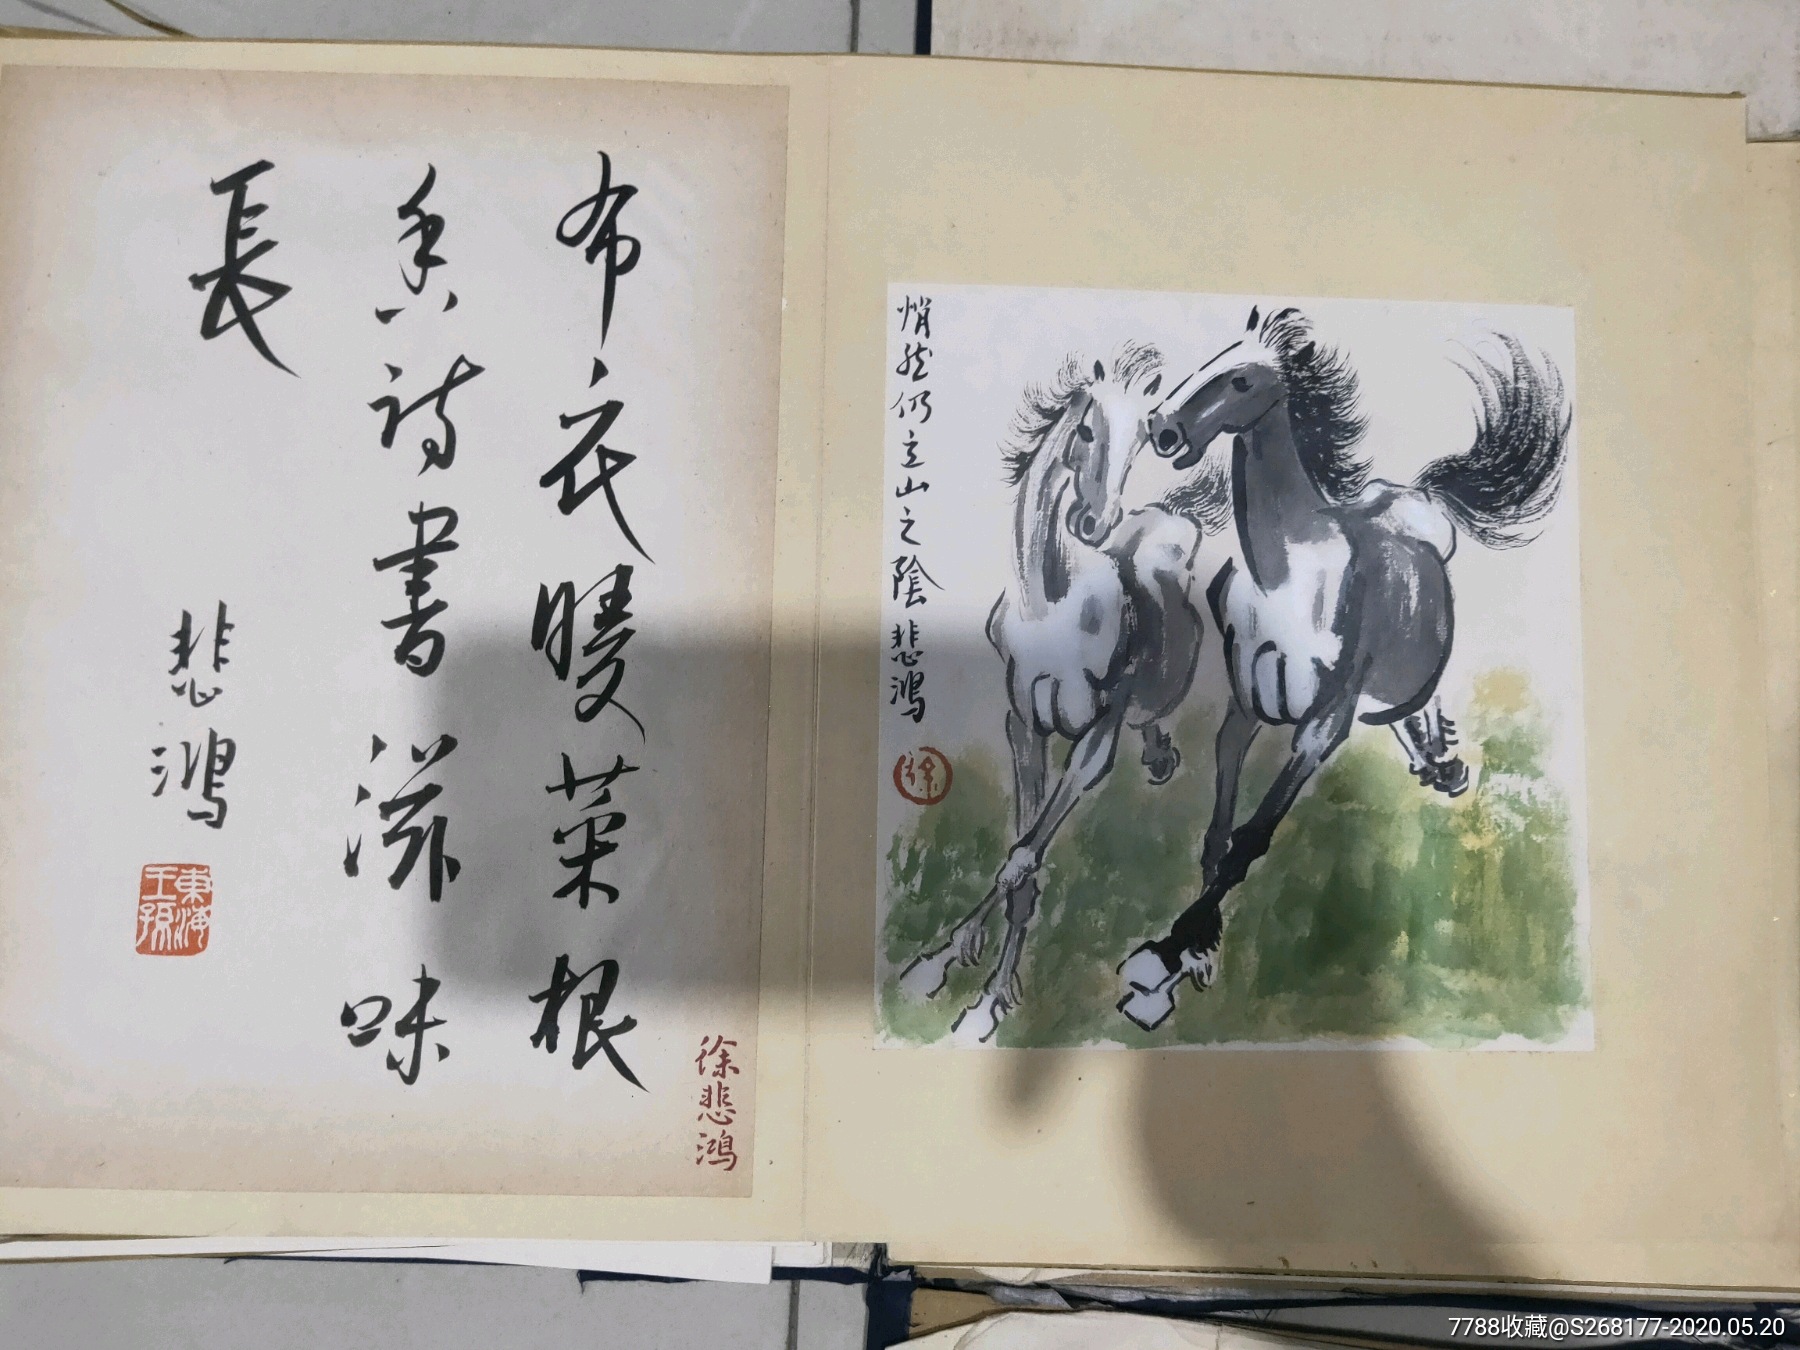 布衣暖菜根
香詩書滋味
長
悲鴻
東海
王孫
徐悲鴻
悄然仍立山之陰 悲鴻
徐
7788收藏@S268177-2020.05.20